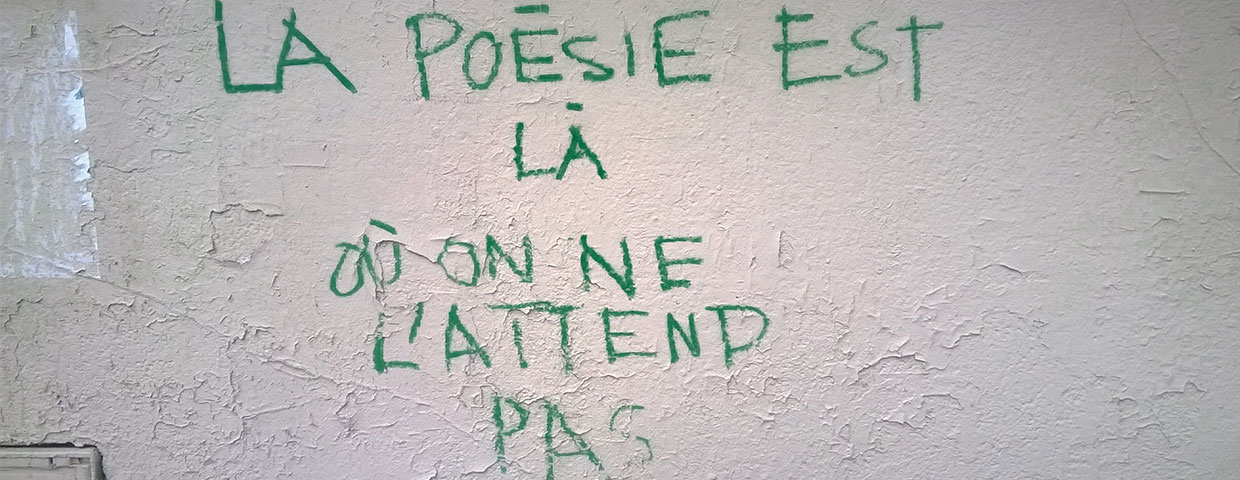 LA POÉSIE EST
LÀ
OÙ ON NE
L'ATTEND
PAS